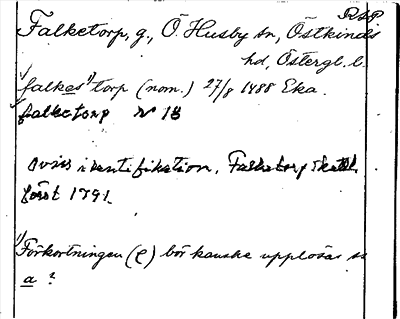 RSP
Falketorp, g., Ö. Husby sn, Östkinds
hd, Östergl. l.
falkes¹⁾torp (nom.) 27/8 1488 Eka.
falketorp № 13
Oviss identifikation, Falketorp
först 1791
¹⁾ Förkortningen (ę) bör kanske upplösas ss
a ?